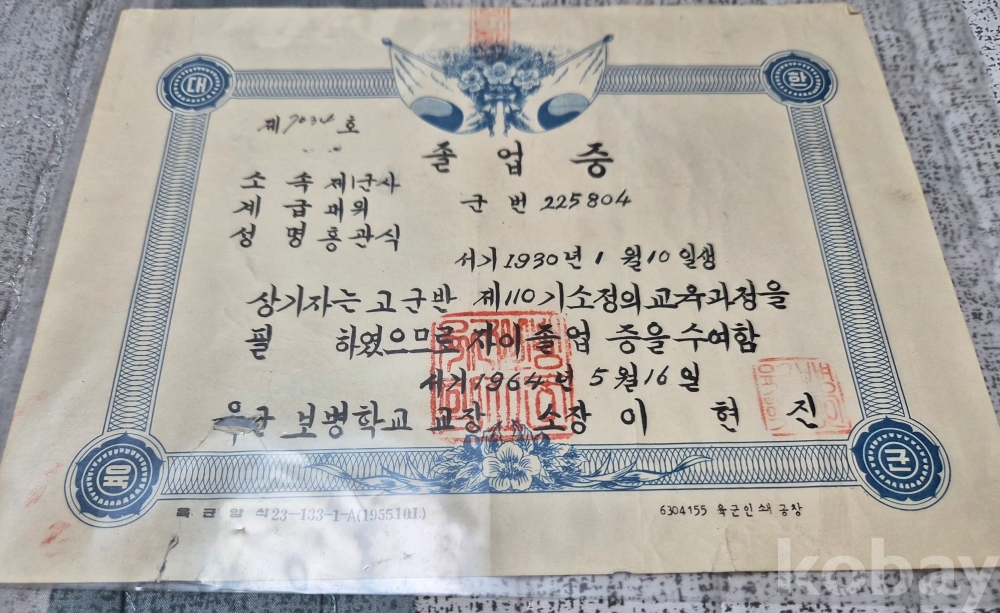 대 한
제 7034 호
졸 업 증
소 속 제1군사
계 급 대위 군 번 225804
성 명 홍관식
서기 1930년 1월 10일생
상기자는 고군반 제110기소정의교육과정을
필 하였으므로 자이 졸업 증을수여함
서기 1964년 5월 16일
육군 보병학교 교장 소장 이 현 진
육 군
육 군 양 식 23-133-1-A(1955.10.1.)
6304155 육군인쇄공창
kobay